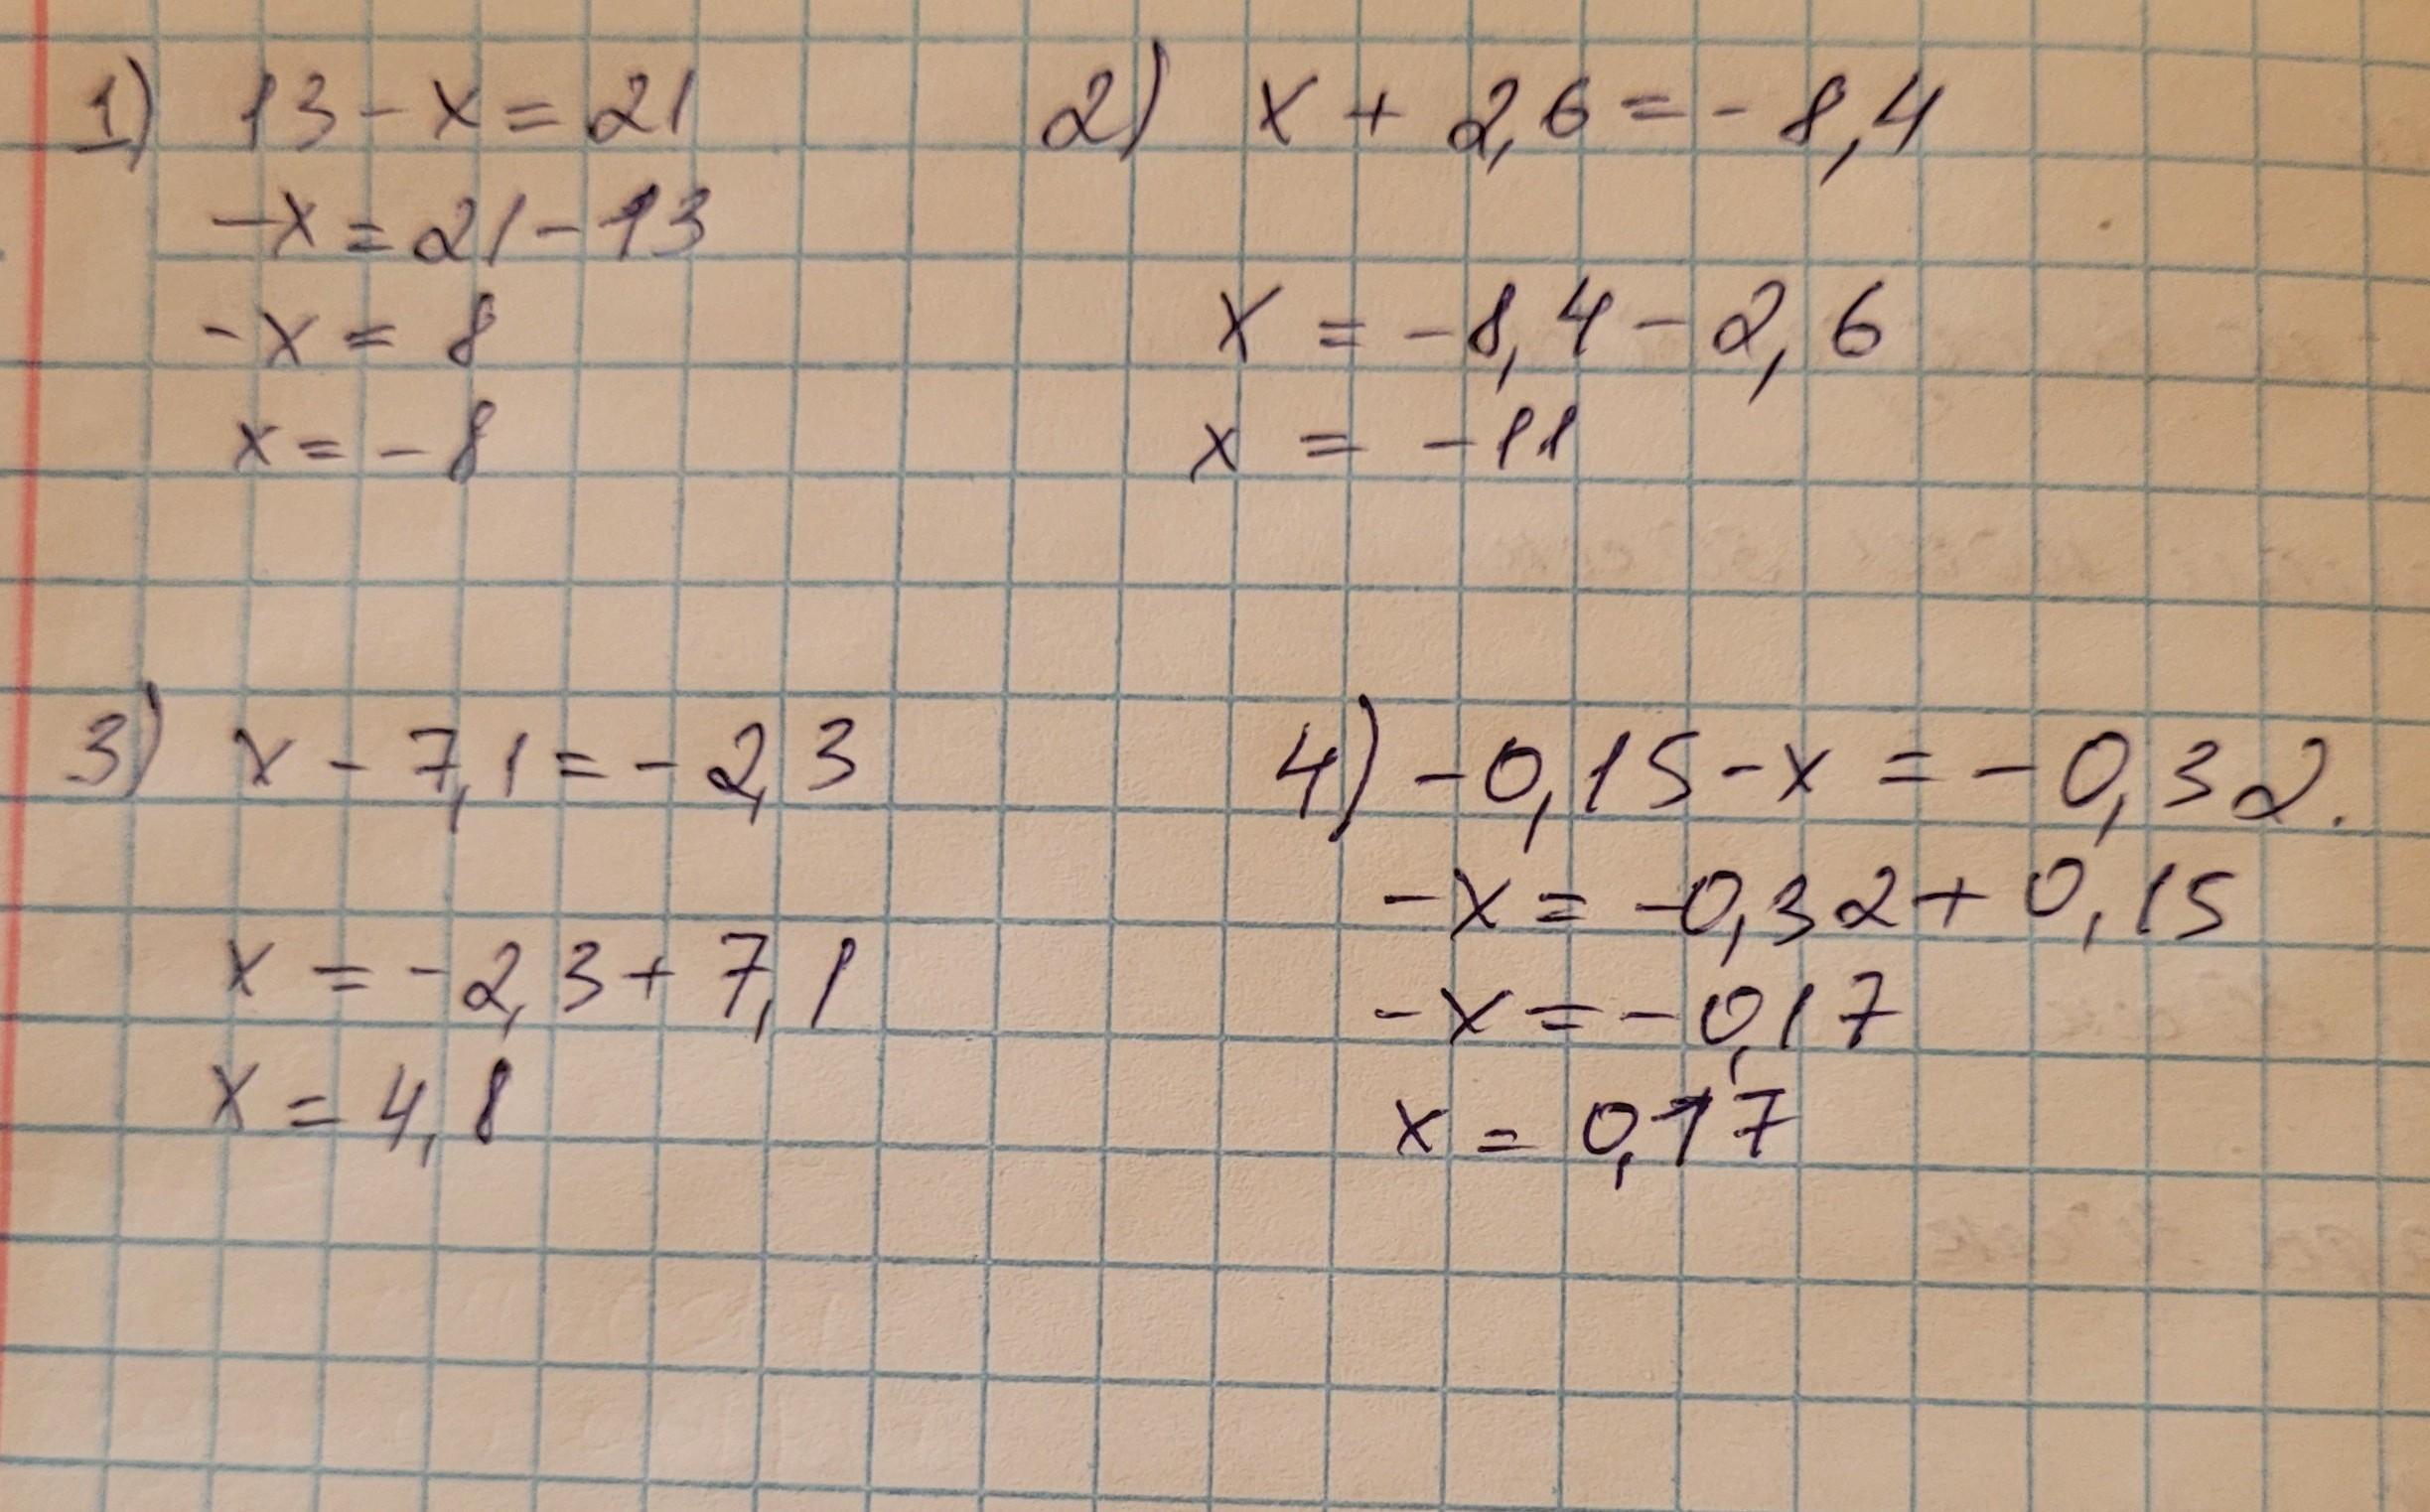 1) 13 - x = 21
-x = 21 - 13
-x = 8
x = -8
2) x + 2,6 = -8,4
x = -8,4 - 2,6
x = -11
3) x - 7,1 = -2,3
x = -2,3 + 7,1
x = 4,8
4) -0,15 - x = -0,32.
-x = -0,32 + 0,15
-x = -0,17
x = 0,17